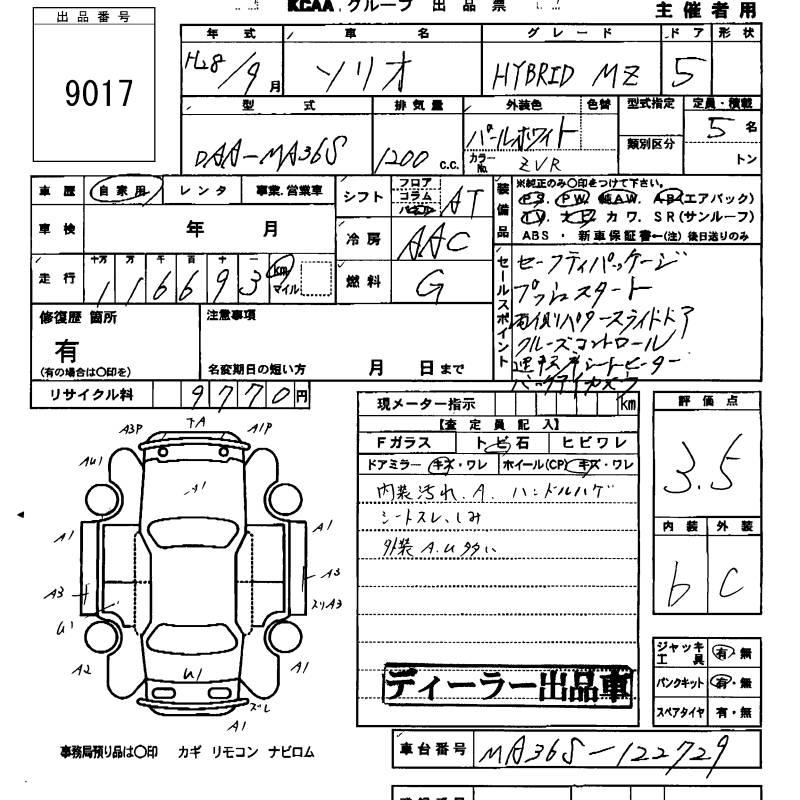 KCAA グループ 出品票
主催者用
出品番号
9017
年式 車名 グレード ドア 形状
H28/9月 ソリオ HYBRID MZ 5
型式 排気量 外装色 色替 型式指定 定員・積載
DAA-MA36S 1200 c.c. パールホワイト 類別区分 5名
カラーNo. ZVR トン
車歴 自家用 レンタ 事業.営業車
シフト フロア コラム パネル AT
車検 年 月
冷房 AAC
走行 十万 万 千 百 十 一
116693 km マイル
燃料 G
装備品
※純正のみ〇印をつけて下さい。
PS. PW. 純AW. AB(エアバック)
TV. ナビ カワ. SR(サンルーフ)
ABS ・ 新車保証書←(注) 後日送りのみ
セールスポイント
セーフティパッケージ
プッシュスタート
両側パワースライドドア
クルーズコントロール
運転席シートヒーター
バックアイカメラ
修復歴 箇所
有
(有の場合は〇印を)
注意事項
名変期日の短い方 月 日まで
リサイクル料 9770円
現メーター指示 km
【査定員記入】
Fガラス トビ石 ヒビワレ
ドアミラー キズ・ワレ ホイール(CP) キズ・ワレ
内装汚れ.A. ハンドルハゲ
シートスレ、しみ
外装A.U多い
ディーラー出品車
評価点
3.5
内装 外装
b C
ジャッキ工具 有・無
パンクキット 有・無
スペアタイヤ 有・無
A3P TA A1P
AU1 A1
A1 A1
A3 A3
スリA3
U1
A2 U1 A1
ズレ
A1
事務局預り品は〇印 カギ リモコン ナビロム
車台番号 MA36S-122729